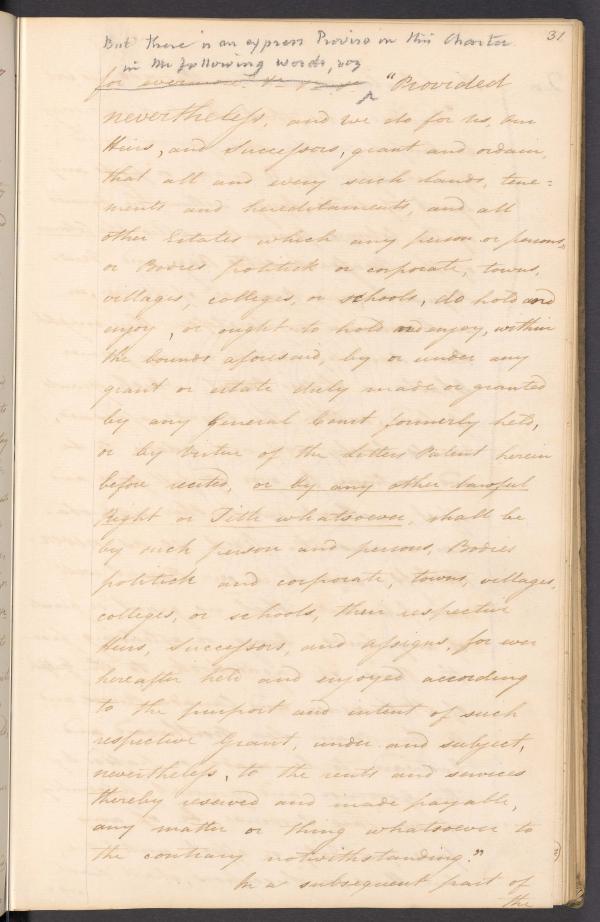 31
But there is an express Proviso in this Charter
in the following words, viz
for evermore. &c "Provided
nevertheless, and we do for us, our
Heirs, and Successors, grant and ordain,
that all and every such lands, tene=
ments and hereditaments, and all
other Estates which any person or persons,
or Bodies politick or corporate, towns,
villages, colleges, or schools, do hold and
enjoy, or ought to hold and enjoy, within
the bounds aforesaid, by or under any
grant or estate duly made or granted
by any General Court formerly held,
or by virtue of the Letters Patent herein
before recited, or by any other lawful
Right or Title whatsoever, shall be
by such person and persons, Bodies
politick and corporate, towns, villages,
colleges, or schools, their respective
Heirs, Successors, and assigns, for ever
hereafter held and enjoyed according
to the purport and intent of such
respective Grant, under and subject,
nevertheless, to the rents and services
thereby reserved and made payable,
any matter or thing whatsoever to
the contrary notwithstanding."
In a subsequent part of
the